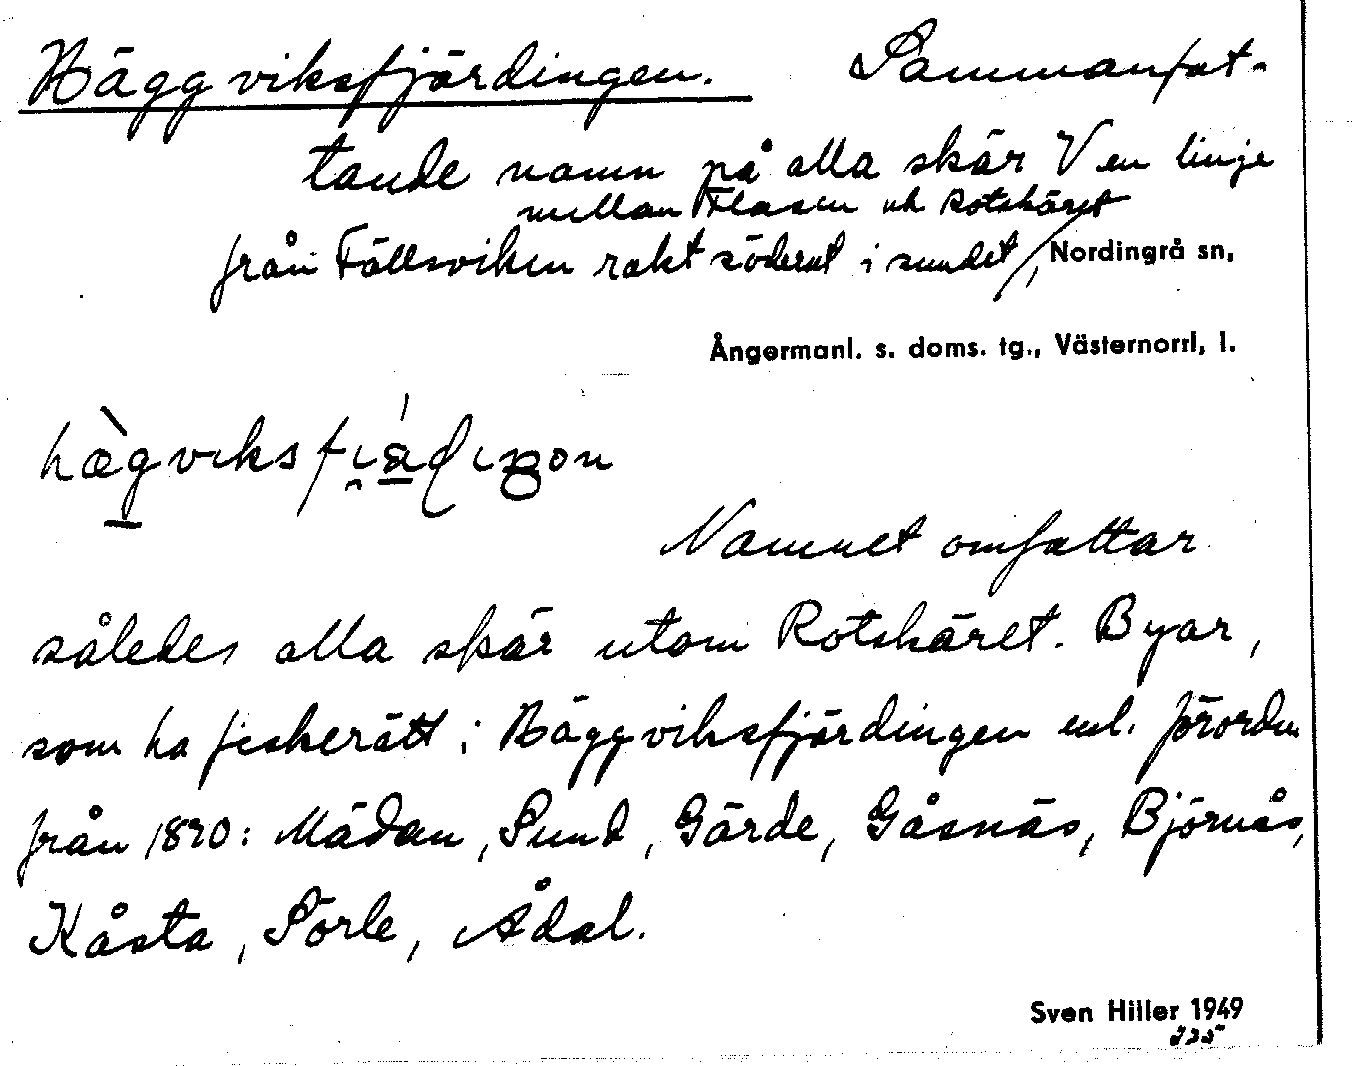 Häggviksfjärdingen. Sammanfat-
tande namn på alla skär V en linje
från Fällsviken rakt söderut i sundet
mellan Flasen och Rotskäret
/, Nordingrå sn,
Ångermanl. s. doms. tg., Västernorrl, l.
Namnet omfattar
således alla skär utom Rotskäret. Byar,
som ha fiskerätt i Häggviksfjärdingen enl. förordn.
från 1890: Mädan, Sund, Gärde, Gåsnäs, Björnås,
Kåsta, Sörle, Ådal.
Sven Hiller 1949